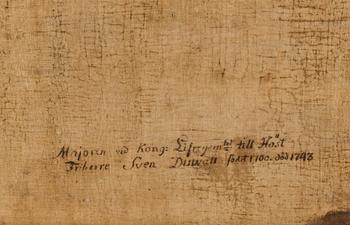 Majoren vid Kong: Lifregem:tet till Häst
Friherre Sven Duwall född 1700. död 1743